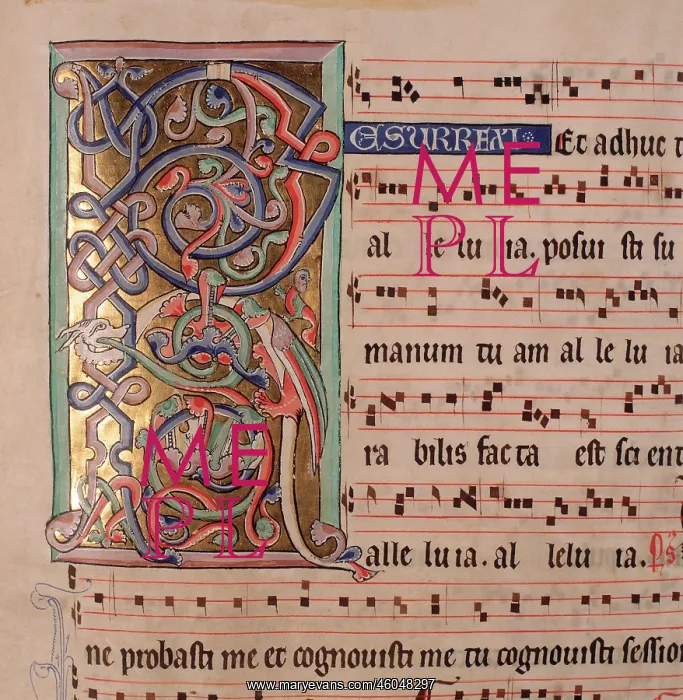 ESURREXI Et adhuc t
al le lu ia. posui sti su
manum tu am al le lu ia
ra bilis facta est sci ent
alle lu ia. al lelu ia. Ps
ne probasti me et cognouisti me tu cognouisti sessio
ME
PL
ME
PL
www.maryevans.com/46048297